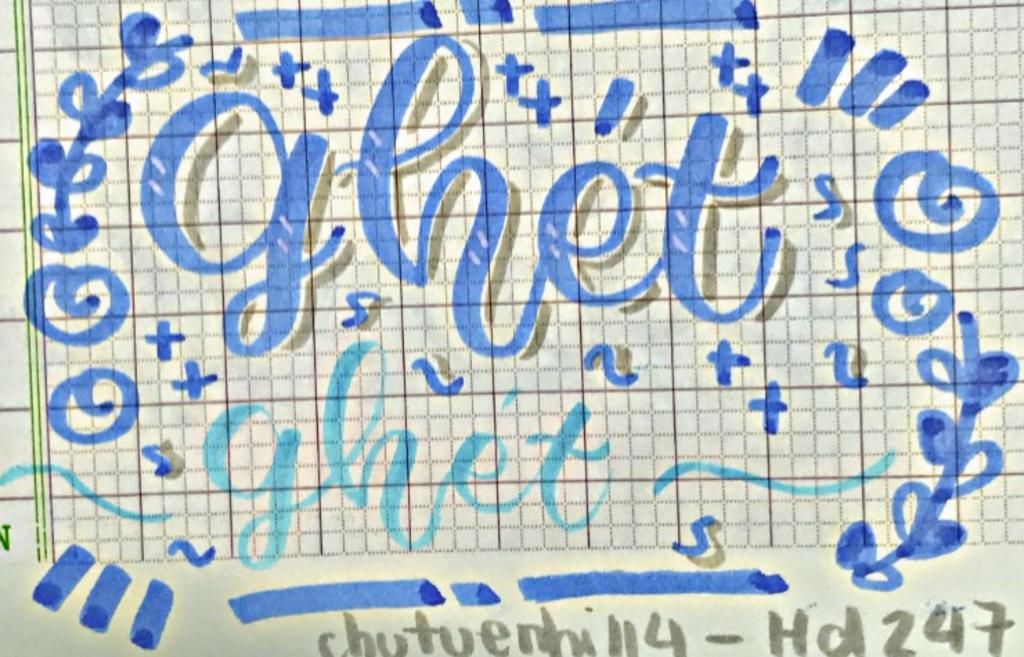 ghét
ghét
N
chutuenhi114 - Hd247